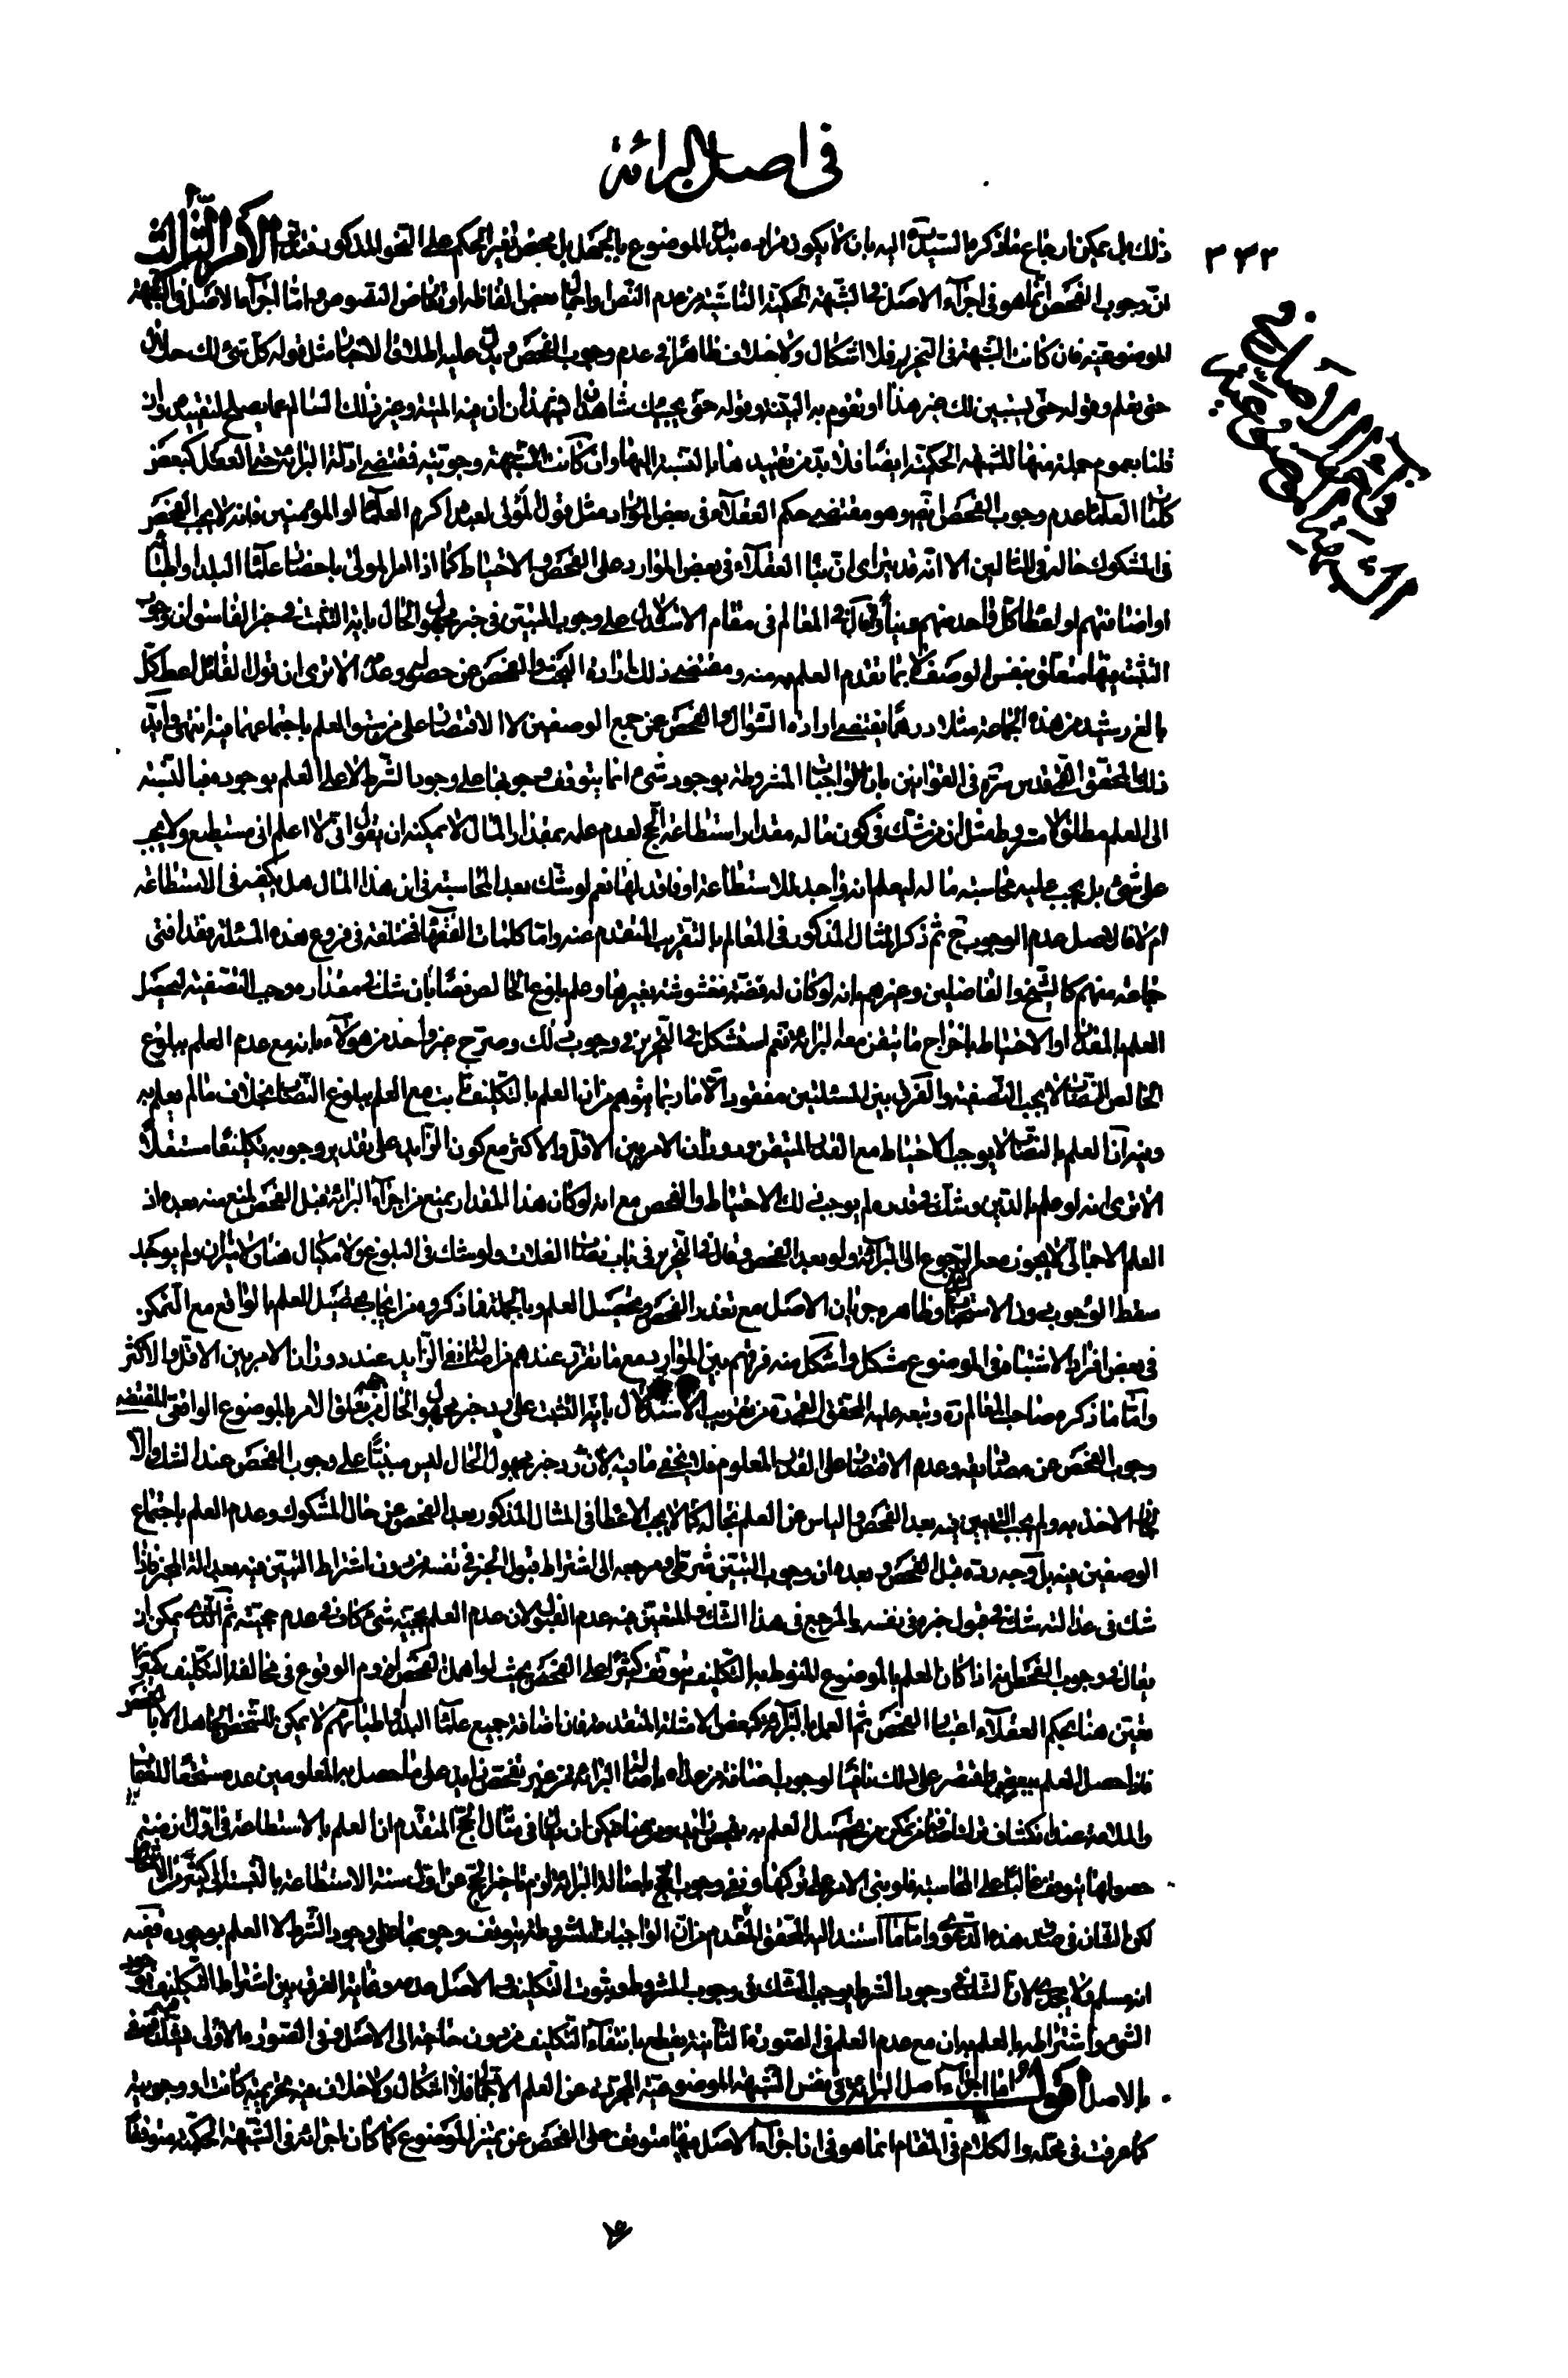 في اصل البرائة
٣٤٣
في اجراء الاصل في الشبهة الموضوعية
ذلك بل يمكن ارجاع ما ذكره السيد ره اليه بان لا يكون مراده تبدل الموضوع بالجهل بل محض تغير الحكم على النحو المذكور فتدبر الأمر الثالث
ان وجوب الفحص انما هو في اجراء الاصل في الشبهة الحكمية الناشئة من عدم النص او اجمال بعض الفاظه او تعارض النصوص واما اجراء الاصل في الشبهة
الموضوعية فان كانت الشبهة في التحريم فلا اشكال ولا خلاف ظاهرا في عدم وجوب الفحص ويدل عليه اطلاق الاخبار مثل قوله كل شئ لك حلال
حتى تعلم وقوله حتى يستبين لك غير هذا او تقوم به البينة وقوله حتى يجيئك شاهدان يشهدان ان فيه الميتة وغير ذلك السالم عما يصلح لتقييده وان
قلنا بعموم جملة منها للشبهة الحكمية ايضا فلا بد من تقييدها بالنسبة اليها وان كانت الشبهة وجوبية فمقتضى ادلة البرائة حتى العقل كبعض
كلمات العلماء عدم وجوب الفحص ايضا وهو مقتضى حكم العقلاء في بعض الموارد مثل قول المولى لعبده اكرم العلماء او المؤمنين فانه لا يجب الفحص
في المشكوك حاله في المثالين الا انه قد يتراءى ان بناء العقلاء في بعض الموارد على الفحص والاحتياط كما اذا امر المولى باحضار علماء البلد او اطبائها
او اضافتهم او اعطاء كل واحد منهم دينارا قال في المعالم في مقام الاستدلال على وجوب التبين في خبر مجهول الحال باية التثبت في خبر الفاسق ان وجوب
التثبت فيها متعلق بنفس الوصف لا بما تقدم العلم به منه ومقتضى ذلك ارادة البحث والفحص عن حصوله وعدمه الا ترى ان قول القائل اعط كل
بالغ رشيد من هذه الجماعة مثلا درهما يقتضي ارادة السؤال والفحص عن جمع الوصفين لا الاقتصار على من سبق العلم باجتماعهما فيه انتهى وايد
ذلك المحقق القمي قدس سره في القوانين بان الواجبات المشروطة بوجود شئ انما يتوقف وجوبها على وجود الشرط لا على العلم بوجوده فبالنسبة
الى العلم مطلق لا مشروط مثل ان من شك في كون ماله مقدار استطاعة الحج لعدم علمه بمقدار المال لا يمكنه ان يقول اني لا اعلم اني مستطيع ولا يجب
علي شئ بل يجب عليه محاسبة ماله ليعلم انه واجد للاستطاعة او فاقد لها نعم لو شك بعد المحاسبة في ان هذا المال هل يكفيه في الاستطاعة
ام لا فالاصل عدم الوجوب ح ثم ذكر المثال المذكور في المعالم بالتقريب المتقدم عنه واما كلمات الفقهاء فمختلفة في فروع هذه المسئلة فقد افتى
جماعة منهم كالشيخ والفاضلين وغيرهم بانه لو كان له فضة مغشوشة بغيرها وعلم بلوغ الخالص نصابا وشك في مقداره وجب التصفية ليحصل
العلم بالمقدار او الاحتياط باخراج ما يتيقن معه البرائة نعم استشكل في التحرير في وجوب ذلك وصرح غير واحد من هؤلاء بانه مع عدم العلم ببلوغ
الخالص النصاب لا يجب التصفية والفرق بين المسئلتين مفقود الا ما ربما يتوهم من ان العلم بالتكليف ثابت مع العلم ببلوغ النصاب بخلاف ما لم يعلم به
وفيه ان العلم بالنصاب لا يوجب الاحتياط مع القدر المتيقن ودوران الامر بين الاقل والاكثر مع كون الزايد على تقدير وجوبه تكليفا مستقلا
الا ترى انه لو علم بالدين وشك في قدره لم يوجب ذلك الاحتياط والفحص مع انه لو كان هذا المقدار يمنع من اجراء البرائة قبل الفحص لمنع منه بعده اذ
العلم الاجمالي لا يجوز معه الرجوع الى البرائة ولو بعد الفحص وقال في التحرير في باب نصاب الغلات ولو شك في البلوغ ولا مكيال هنا ولا ميزان ولم يوجد
سقط الوجوب دون الاستحباب وظاهره جريان الاصل مع تعذر الفحص وتحصيل العلم وبالجملة فما ذكروه من ايجاب تحصيل العلم بالواقع مع التمكن
في بعض افراد الاشتباه في الموضوع مشكل واشكل منه فرقهم بين الموارد مع ما تقرر عندهم من اصالة نفي الزايد عند دوران الامر بين الاقل والاكثر
واما ما ذكره صاحب المعالم ره وتبعه عليه المحقق القمي ره من تقريب الاستدلال باية التثبت على رد خبر مجهول الحال من جهة تعلق الامر بالموضوع الواقعي المقتضي
وجوب الفحص عن مصاديقه وعدم الاقتصار على القدر المعلوم فلا يخفى ما فيه لان رد خبر مجهول الحال ليس مبنيا على وجوب الفحص عند الشك والا
لجاز الاخذ به ولم يجب التبين فيه بعد الفحص والياس عن العلم بحاله كما لا يجب الاعطاء في المثال المذكور بعد الفحص عن حال المشكوك وعدم العلم باجتماع
الوصفين فيه بل وجه رده قبل الفحص وبعده ان وجوب التبين شرطي ومرجعه الى اشتراط قبول الخبر في نفسه من دون اشتراط التبين فيه بعدالة المخبر فاذا
شك في عدالته شك في قبول خبره في نفسه والمرجع في هذا الشك والمتعين فيه عدم القبول لان عدم العلم بحجية شئ كاف في عدم حجيته ثم الذي يمكن ان
يقال في وجوب الفحص انه اذا كان العلم بالموضوع المنوط به التكليف يتوقف كثيرا على الفحص بحيث لو اهمل الفحص لزم الوقوع في مخالفة التكليف كثيرا
تعين هنا بحكم العقلاء اعتبار الفحص ثم العمل بالبرائة كبعض الامثلة المتقدمة فان اضافة جميع علماء البلد او اطبائهم لا يمكن للشخص الجاهل الا بالفحص
فاذا حصل العلم ببعض واقتصر على ذلك نافيا لوجوب اضافة من عداه باصالة البرائة من غير تفحص زايد على ما حصل به المعلومين عد مستحقا للعقاب
والملامة عند انكشاف ترك اضافة من يتمكن من تحصيل العلم به بفحص زايد ومن هنا يمكن ان يقال في مثال الحج المتقدم ان العلم بالاستطاعة في اول ازمنة
حصولها يتوقف غالبا على المحاسبة فلو بنى الامر على تركها ونفي وجوب الحج باصالة البرائة لزم تاخير الحج عن اول سنة الاستطاعة بالنسبة الى كثير من الاشخاص
لكن الشان في صدق هذه الدعوى واما ما استند اليه المحقق المتقدم من ان الواجبات المشروطة يتوقف وجوبها على وجود الشرط لا العلم بوجوده ففيه
انه مسلم ولا يجدي لان الشك في وجود الشرط يوجب الشك في وجوب المشروط وثبوت التكليف والاصل عدمه وغاية الفرق بين اشتراط التكليف بوجود
الشئ واشتراطه بالعلم به ان مع عدم العلم في الصورة الثانية يقطع بانتفاء التكليف من دون حاجة الى الاصل وفي الصورة الاولى يشك فينفى
بالاصل اقول اما اجراء اصل البرائة في نفس الشبهة الموضوعية المجردة عن العلم الاجمالي فلا اشكال ولا خلاف فيه تحريمية كانت او وجوبية
كما عرفت في محله والكلام في المقام انما هو في ان اجراء الاصل فيها متوقف على الفحص عن تميز الموضوع كما كان اجرائه في الشبهة الحكمية متوقفا